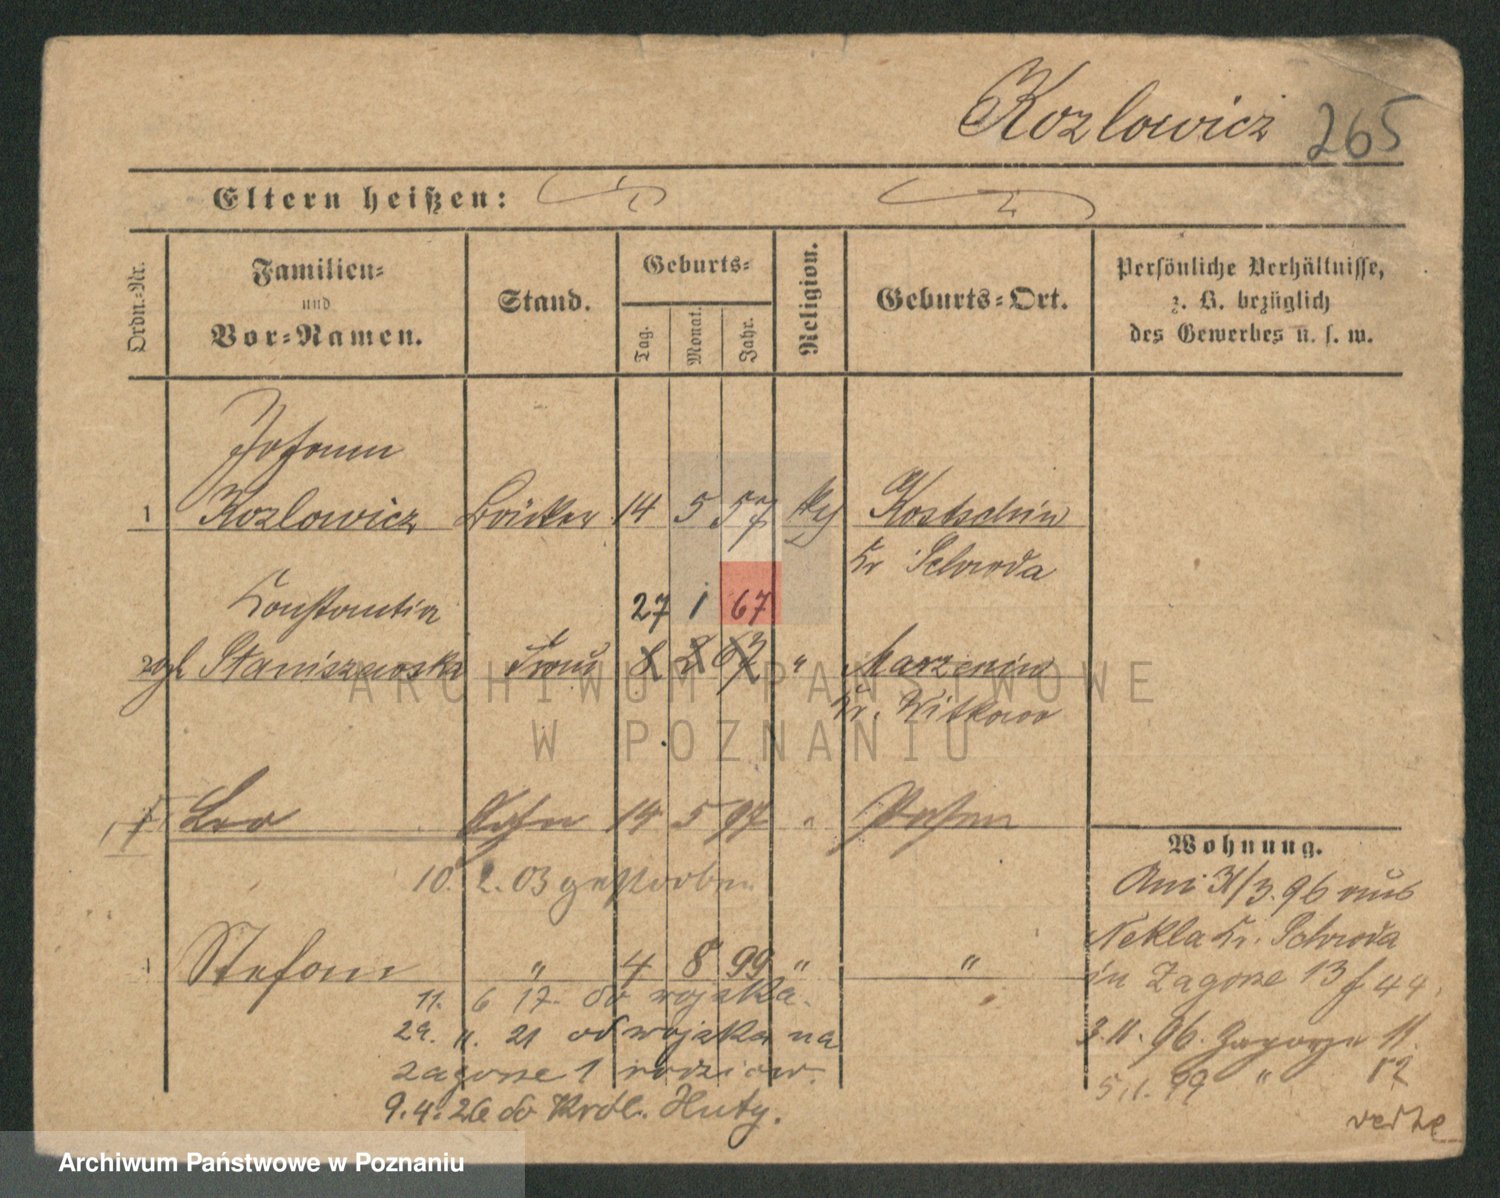 Kozlowicz 265
Eltern heißen:
Ordn.-Nr.
Familien-
und
Vor-Namen.
Stand.
Geburts-
Tag.
Monat.
Jahr.
Religion.
Geburts-Ort.
Persönliche Verhältnisse,
z. B. bezüglich
des Gewerbes u. s. w.
Johann
1 Kozlowicz 14 5 57 Kostschin
Kr Schroda
Constantia 27 1 67
Staniszewska Frau 8 " Marzenin
Kr. Witkowo
1 Leo Sohn 14 5 97 " Posen
10. 2. 03 gestorben
1 Stefan " 4 8 99 " "
11. 6 17. do wojska.
29. ". 21 od wojska na
Zagorze 1 rodziców.
9.4.26 do Król. Huty.
Wohnung.
Am 31/3.96 aus
Nekla Kr. Schroda
in Zagorze 13 f 44.
3.11.96. Zagorze 11.
5.1.99 " 12
verte
ARCHIWUM PAŃSTWOWE
W POZNANIU
Archiwum Państwowe w Poznaniu